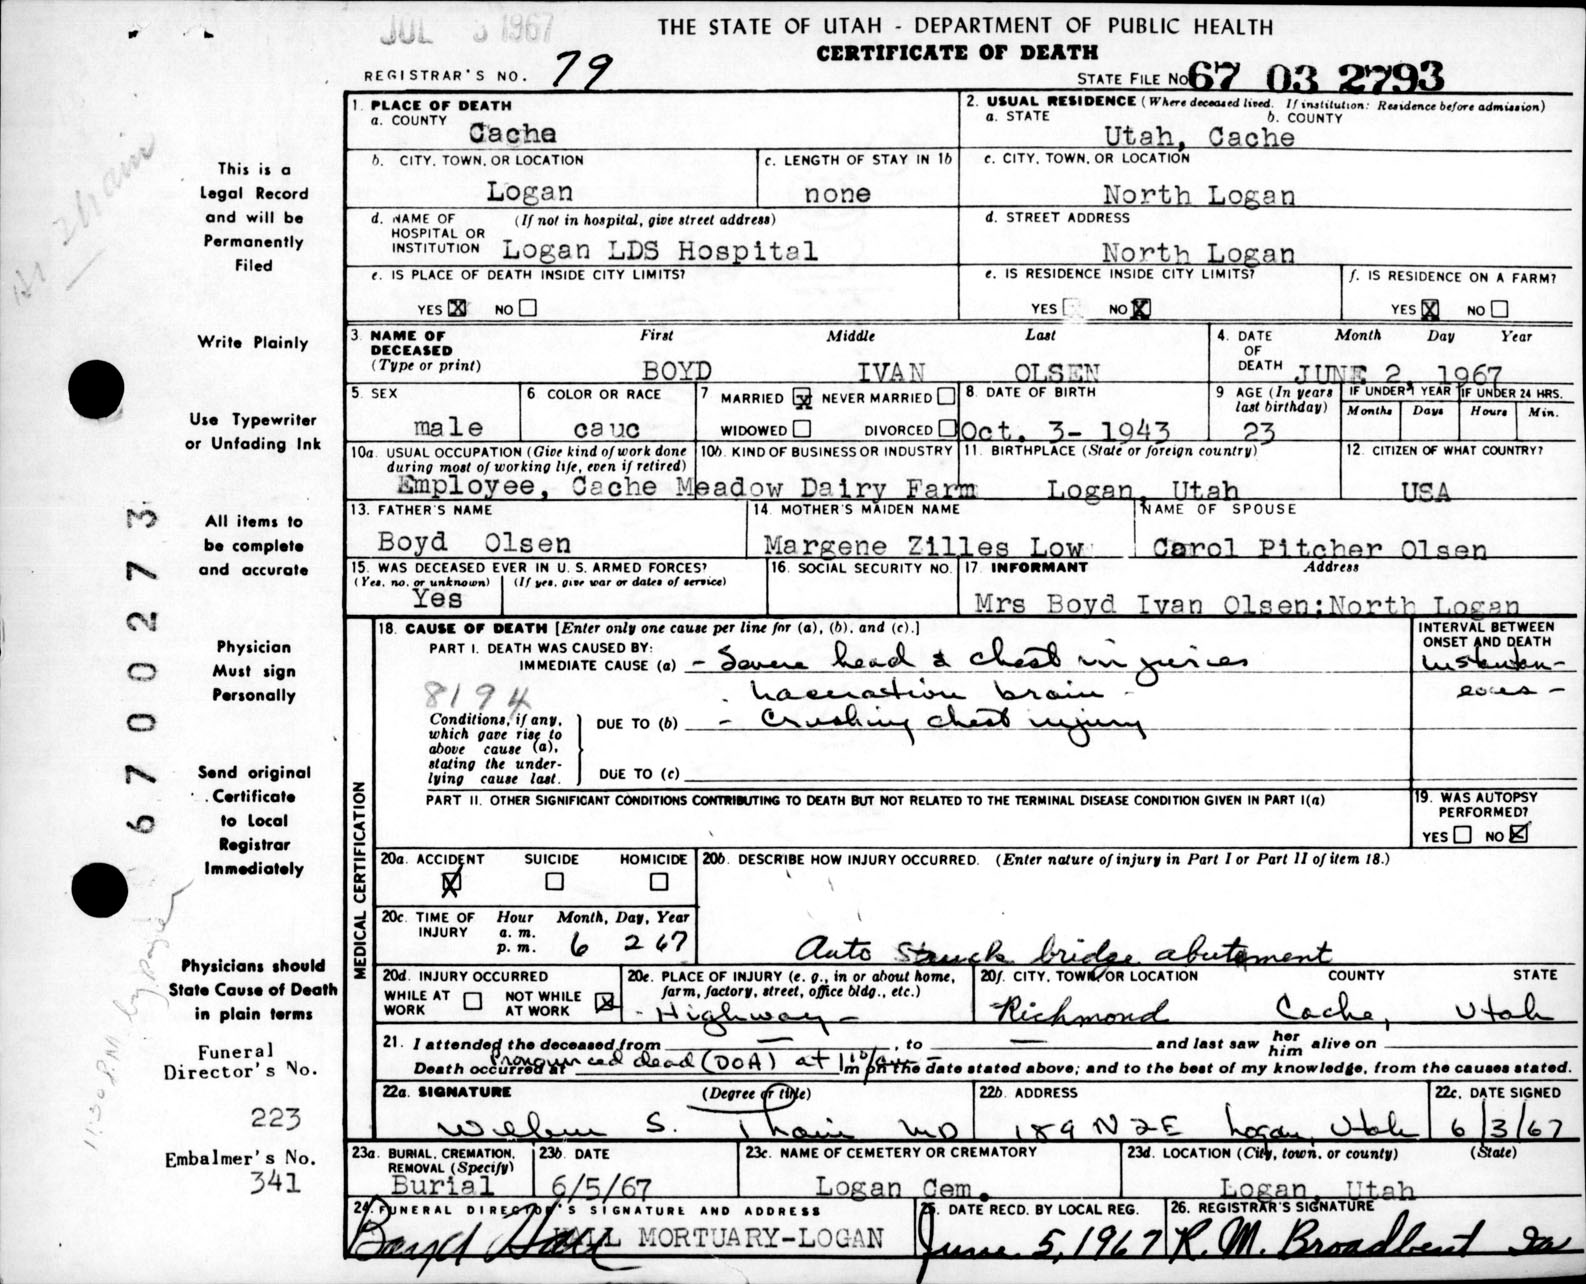 JUL 5 1967
THE STATE OF UTAH - DEPARTMENT OF PUBLIC HEALTH
CERTIFICATE OF DEATH
REGISTRAR'S NO. 79
STATE FILE No 67 03 2793
1. PLACE OF DEATH
a. COUNTY
Cache
2. USUAL RESIDENCE (Where deceased lived. If institution: Residence before admission)
a. STATE b. COUNTY
Utah, Cache
b. CITY, TOWN, OR LOCATION
Logan
c. LENGTH OF STAY IN 1b
none
c. CITY, TOWN, OR LOCATION
North Logan
d. NAME OF HOSPITAL OR INSTITUTION (If not in hospital, give street address)
Logan LDS Hospital
d. STREET ADDRESS
North Logan
e. IS PLACE OF DEATH INSIDE CITY LIMITS?
YES X NO
e. IS RESIDENCE INSIDE CITY LIMITS?
YES NO X
f. IS RESIDENCE ON A FARM?
YES X NO
3. NAME OF DECEASED (Type or print)
First Middle Last
BOYD IVAN OLSEN
4. DATE OF DEATH Month Day Year
JUNE 2 1967
5. SEX
male
6 COLOR OR RACE
cauc
7 MARRIED X NEVER MARRIED
WIDOWED DIVORCED
8. DATE OF BIRTH
Oct. 3- 1943
9 AGE (In years last birthday)
23
IF UNDER 1 YEAR IF UNDER 24 HRS.
Months Days Hours Min.
10a. USUAL OCCUPATION (Give kind of work done during most of working life, even if retired)
10b. KIND OF BUSINESS OR INDUSTRY
Employee, Cache Meadow Dairy Farm
11. BIRTHPLACE (State or foreign country)
Logan, Utah
12. CITIZEN OF WHAT COUNTRY?
USA
13. FATHER'S NAME
Boyd Olsen
14. MOTHER'S MAIDEN NAME
Margene Zilles Low
NAME OF SPOUSE
Carol Pitcher Olsen
15. WAS DECEASED EVER IN U. S. ARMED FORCES?
(Yes, no, or unknown) (If yes, give war or dates of service)
Yes
16. SOCIAL SECURITY NO.
17. INFORMANT Address
Mrs Boyd Ivan Olsen:North Logan
18. CAUSE OF DEATH [Enter only one cause per line for (a), (b), and (c).]
INTERVAL BETWEEN ONSET AND DEATH
PART I. DEATH WAS CAUSED BY:
IMMEDIATE CAUSE (a) - Severe head & chest injuries
Instantan-
eous -
8194
Laceration brain -
Conditions, if any, which gave rise to above cause (a), stating the underlying cause last.
DUE TO (b) - Crushing chest injury
DUE TO (c)
PART II. OTHER SIGNIFICANT CONDITIONS CONTRIBUTING TO DEATH BUT NOT RELATED TO THE TERMINAL DISEASE CONDITION GIVEN IN PART I(a)
19. WAS AUTOPSY PERFORMED?
YES NO X
MEDICAL CERTIFICATION
20a. ACCIDENT SUICIDE HOMICIDE
X
20b. DESCRIBE HOW INJURY OCCURRED. (Enter nature of injury in Part I or Part II of item 18.)
Auto struck bridge abutement
20c. TIME OF INJURY Hour Month, Day, Year
a. m.
p. m. 6 2 67
20d. INJURY OCCURRED
WHILE AT WORK NOT WHILE AT WORK X
20e. PLACE OF INJURY (e. g., in or about home, farm, factory, street, office bldg., etc.)
- Highway -
20f. CITY, TOWN, OR LOCATION COUNTY STATE
Richmond Cache, Utah
21. I attended the deceased from — , to — and last saw her him alive on
Death occurred at Pronounced dead (DOA) at m on the date stated above; and to the best of my knowledge, from the causes stated.
22a. SIGNATURE (Degree or title)
S. Thain MD
22b. ADDRESS
189 N 2E Logan, Utah
22c. DATE SIGNED
6/3/67
23a. BURIAL, CREMATION, REMOVAL (Specify)
Burial
23b. DATE
6/5/67
23c. NAME OF CEMETERY OR CREMATORY
Logan Cem.
23d. LOCATION (City, town, or county) (State)
Logan, Utah
24. FUNERAL DIRECTOR'S SIGNATURE AND ADDRESS
Boyd Hall HALL MORTUARY-LOGAN
25. DATE RECD. BY LOCAL REG.
June 5, 1967
26. REGISTRAR'S SIGNATURE
R. M. Broadbent
This is a
Legal Record
and will be
Permanently
Filed
Write Plainly
Use Typewriter
or Unfading Ink
All items to
be complete
and accurate
Physician
Must sign
Personally
Send original
Certificate
to Local
Registrar
Immediately
Physicians should
State Cause of Death
in plain terms
Funeral
Director's No.
223
Embalmer's No.
341
67 00273
11:30 P.M.